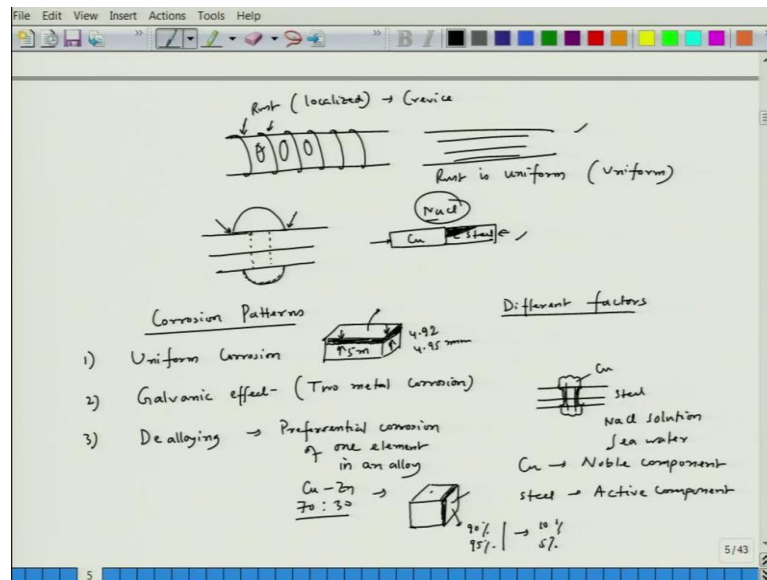 File Edit View Insert Actions Tools Help
B I
Rust (localized) → Crevice
Rust is uniform (Uniform)
NaCl
Cu
Steel
Corrosion Patterns
Different factors
1) Uniform Corrosion
5m
4.92
4.95 mm
2) Galvanic effect- (Two metal corrosion)
Cu
Steel
NaCl solution
Sea water
3) Dealloying → Preferential corrosion
of one element
in an alloy
Cu → Noble component
Cu-Zn →
70:30
Steel → Active Component
90% → 10%
95% 5%
5/43
5